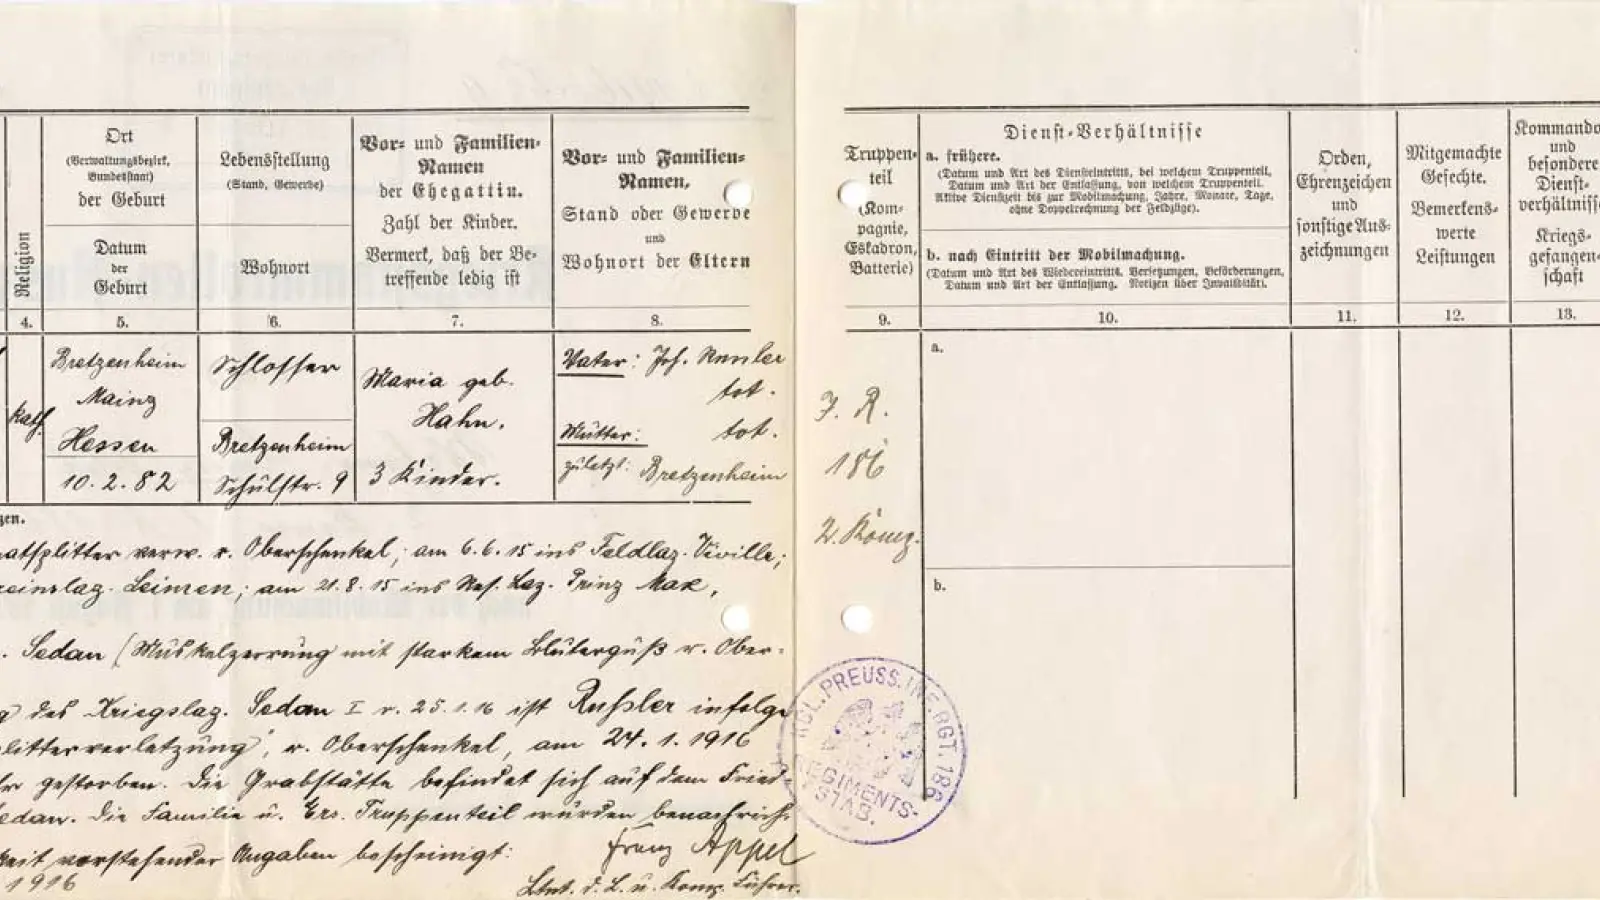 Religion
Ort
(Verwaltungsbezirk,
Bundesstaat)
der Geburt
Datum
der
Geburt
Lebensstellung
(Stand, Gewerbe)
Wohnort
Vor- und Familien-
Namen
der Ehegattin.
Zahl der Kinder.
Vermerk, daß der Be-
treffende ledig ist
Vor- und Familien-
Namen,
Stand oder Gewerbe
und
Wohnort der Eltern
4. 5. 6. 7. 8.
kath.
Bretzenheim
Mainz
Hessen
10. 2. 82
Schlosser
Bretzenheim
Schulstr. 9
Maria geb.
Hahn.
3 Kinder.
Vater: Joh.
tot.
Mutter: tot.
zuletzt: Bretzenheim
zen.
atsplitter verw. r. Oberschenkel; am 6.6.15 ins Feldlaz. Viville;
reinslaz. Leimen; am 21.8.15 ins Res. Laz. Prinz Max,
. Sedan (Muskelzerrung mit starkem Bluterguß r. Ober-
g des Kriegslaz. Sedan I v. 25.1.16 ist Rußler infolge
litterverletzung, r. Oberschenkel, am 24.1.1916
hr gestorben. Die Grabstätte befindet sich auf dem Fried-
edan. Die Familie u. Ers. Truppenteil wurden benachrich-
keit vorstehender Angaben bescheinigt:
1916
Franz Appel
Ltnt. d. L. u. Komp. Führer.
Truppen-
teil
(Kom-
pagnie,
Eskadron,
Batterie)
Dienst-Verhältnisse
a. frühere.
(Datum und Art des Diensteintritts, bei welchem Truppenteil,
Datum und Art der Entlassung, von welchem Truppenteil.
Aktive Dienstzeit bis zur Mobilmachung, Jahre, Monate, Tage,
ohne Doppelrechnung der Feldzüge).
b. nach Eintritt der Mobilmachung.
(Datum und Art des Wiedereintritts, Versetzungen, Beförderungen,
Datum und Art der Entlassung. Notizen über Invalidität).
Orden,
Ehrenzeichen
und
sonstige Aus-
zeichnungen
Mitgemachte
Gefechte.
Bemerkens-
werte
Leistungen
Kommando
und
besondere
Dienst-
verhältniss
Kriegs-
gefangen-
schaft
9. 10. 11. 12. 13.
J. R.
186
2. Komp.
a.
b.
KGL. PREUSS. INF. RGT. 186
REGIMENTS-
STAB.